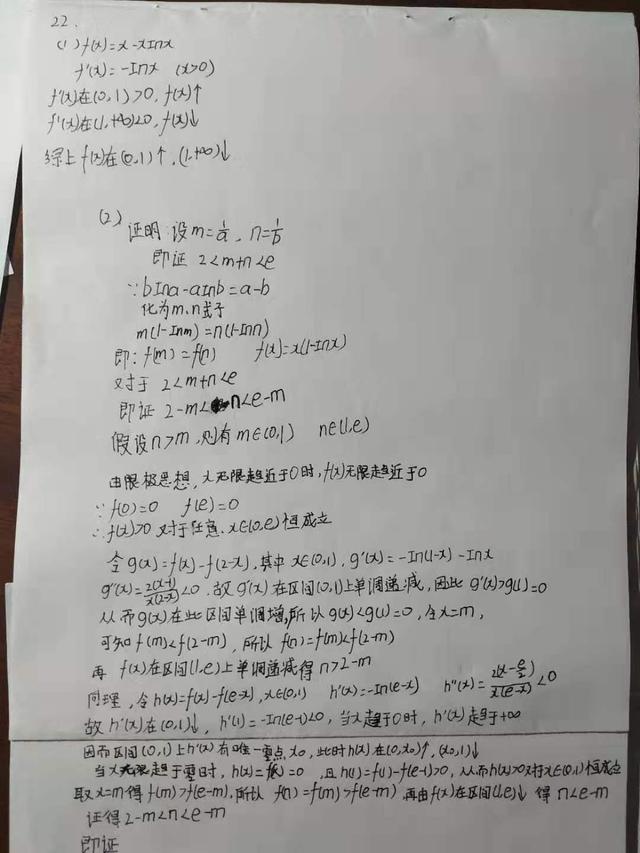 22.
(1) f(x)=x-xlnx
f'(x)=-lnx (x>0)
f'(x)在(0,1)>0,f(x)↑
f'(x)在(1,+∞)<0,f(x)↓
综上f(x)在(0,1)↑,(1,+∞)↓
(2)
证明:设m=1/a, n=1/b
即证 2<m+n<e
∵blna-alnb=a-b
化为m、n式子
m(1-lnm)=n(1-lnn)
即:f(m)=f(n) f(x)=x(1-lnx)
对于 2<m+n<e
即证 2-m<n<e-m
假设n>m,则有m∈(0,1) n∈(1,e)
由限极思想,x无限趋近于0时,f(x)无限趋近于0
∵f(0)=0 f(e)=0
∴f(x)>0 对于任意x∈(0,e)恒成立
令g(x)=f(x)-f(2-x),其中x∈(0,1),g'(x)=-ln(1-x)-lnx
g''(x)=2(x-1)/x(2-x)<0.故g'(x)在区间(0,1)上单调递减,因此g'(x)>g(1)=0
从而g(x)在此区间单调增,所以g(x)<g(1)=0,令x=m,
可知f(m)<f(2-m),所以f(n)=f(m)<f(2-m)
再 f(x)在区间(1,e)上单调递减得n>2-m
同理,令h(x)=f(x)-f(e-x),x∈(0,1) h'(x)=-ln(e-x) h''(x)=2(x-e/2)/x(e-x)<0
故h'(x)在(0,1)↓,h'(1)=-ln(e-1)<0,当x趋于0时,h'(x)趋于+∞
因而区间(0,1)上h'(x)有唯一重点x0,此时h(x)在(0,x0)↑,(x0,1)↓
当x无限趋于零时,h(x)=f(x)=0,且h(1)=f(1)-f(e-1)>0,从而h(x)>0对于x∈(0,1)恒成立
取x=m得f(m)>f(e-m),所以f(n)=f(m)>f(e-m),再由f(x)在区间(1,e)↓得n<e-m
证得2-m<n<e-m
即证